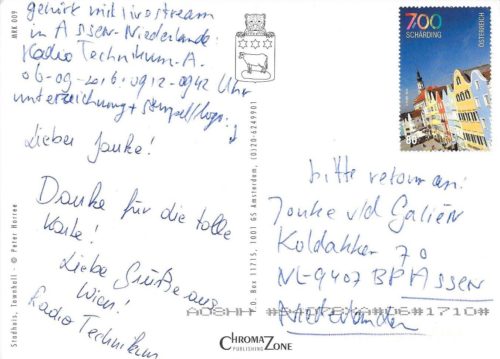 gehört mit livestream
in Assen-Niederlande:
Radio Technikum-A.
06-09-2016. 0912-0942 Uhr
unterzeichnung + stempel/logo:
Lieber Jouke!
Danke für die tolle
Karte!
Liebe Grüße aus
Wien!
Radio Technikum
MRK 009
Stadhuis, Townhall © Peter Horree
P.O. Box 11715, 1001 GS Amsterdam, (0)20-6249901
CHROMAZONE
PUBLISHING
700
SCHÄRDING
ÖSTERREICH
80
bitte retour an:
Jouke v/d Galiën
Koldakker 70
NL-9407 BP Assen
Niederlanden